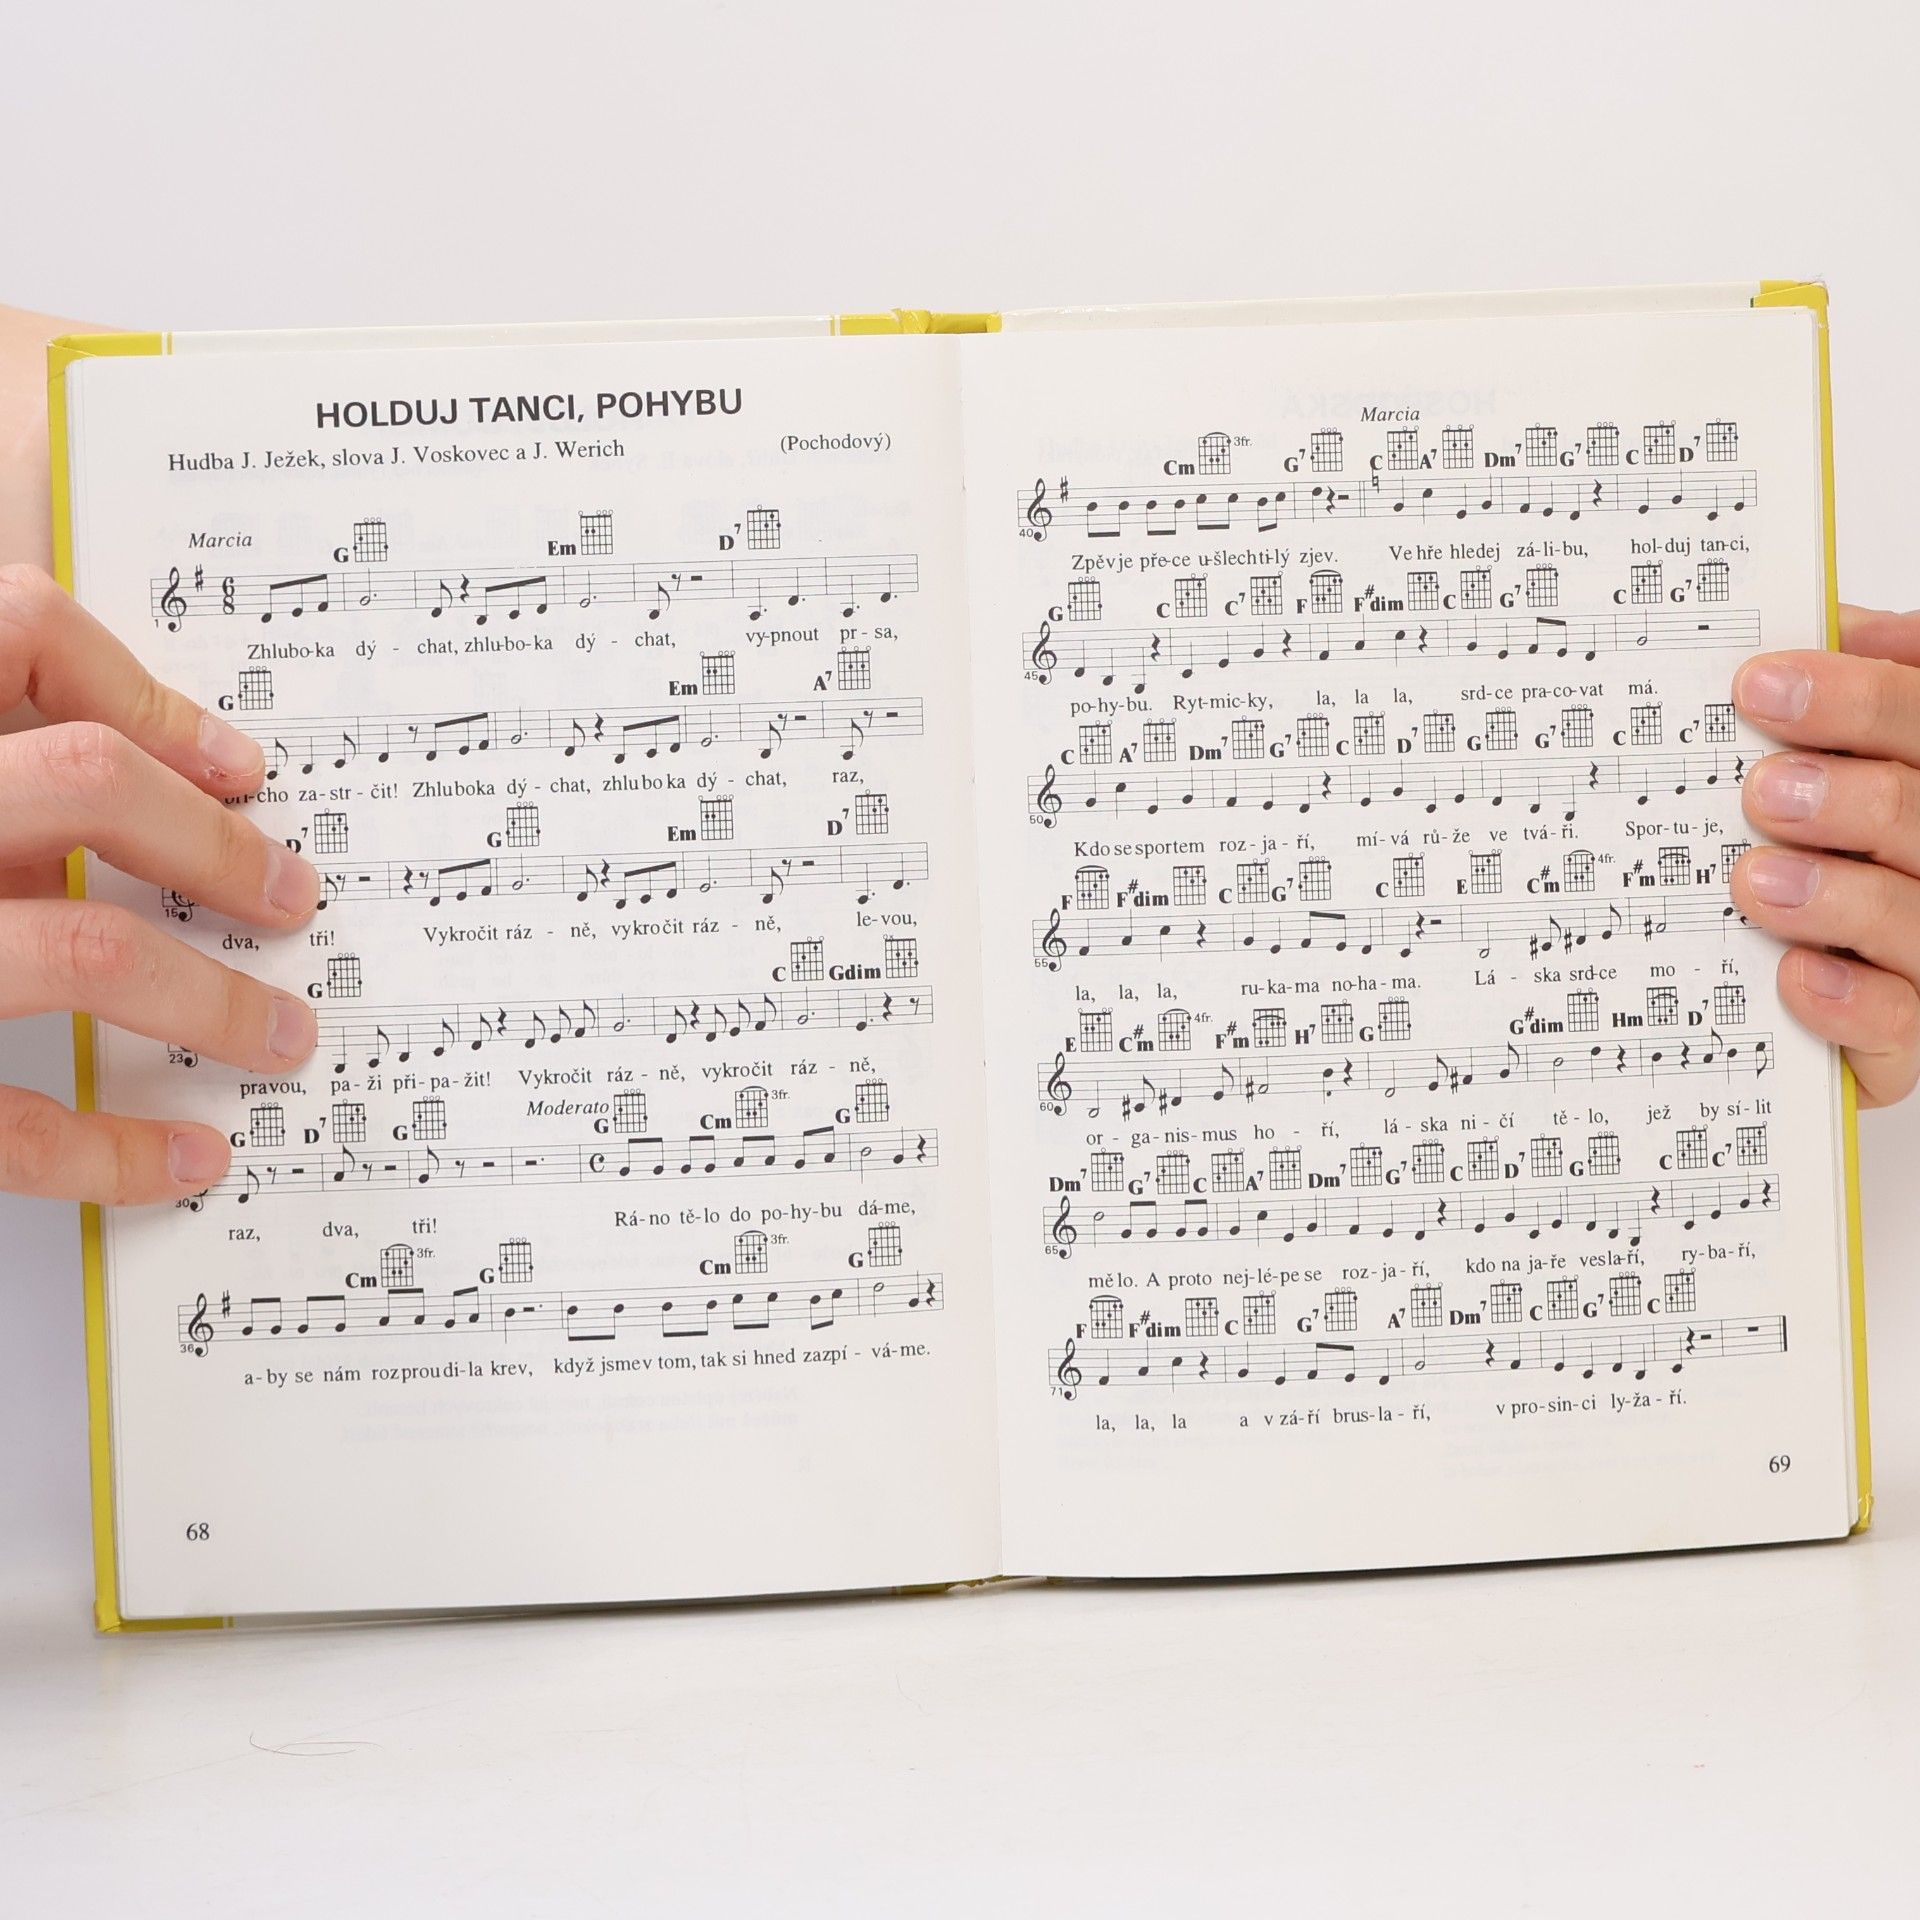 HOLDUJ TANCI, POHYBU
Hudba J. Ježek, slova J. Voskovec a J. Werich
(Pochodový)
Marcia
G Em D7
6 8
1
Zhlubo-ka dý - chat, zhlu-bo-ka dý - chat, vy-pnout pr - sa,
G Em A7
za- str - čit! Zhluboka dý - chat, zhlu bo ka dý - chat, raz,
D7 G Em D7
15
dva, tři! Vykročit ráz - ně, vykročit ráz - ně, le-vou,
G C Gdim
23
pravou, pa- ži při- pa- žit! Vykročit ráz - ně, vykročit ráz - ně,
G D7 G Moderato G Cm 3fr. G
30
raz, dva, tři! Rá- no tě- lo do po- hy- bu dá- me,
Cm 3fr. G Cm 3fr. G
36
a- by se nám rozproudi- la krev, když jsme v tom, tak si hned zazpí - vá- me.
68
Marcia
Cm 3fr. G7 C A7 Dm7 G7 C D7
40
Zpěv je pře-ce u-šlechti-lý zjev. Ve hře hledej zá- li- bu, hol- duj tan-ci,
G C C7 F F#dim C G7 C G7
45
po-hy-bu. Ryt-mic-ky, la, la la, srd- ce pra-co-vat má.
C A7 Dm7 G7 C D7 G G7 C C7
50
Kdo se sportem roz- ja- ří, mí- vá rů- že ve tvá- ři. Spor- tu- je,
F F#dim C G7 C E C#m 4fr. F#m H7
55
la, la, la, ru- ka- ma no-ha- ma. Lá - ska srd-ce mo - ří,
E C#m 4fr. F#m H7 G G#dim Hm D7
60
or - ga- nis- mus ho - ří, lá - ska ni - čí tě - lo, jež by sí- lit
Dm7 G7 C A7 Dm7 G7 C D7 G C C7
65
mě lo. A proto nej- lé- pe se roz- ja- ří, kdo na ja- ře vesla-ří, ry-ba- ří,
F F#dim C G7 A7 Dm7 C G7 C
71
la, la, la a v zá- ří brus- la - ří, v pro- sin- ci ly- ža - ří.
69